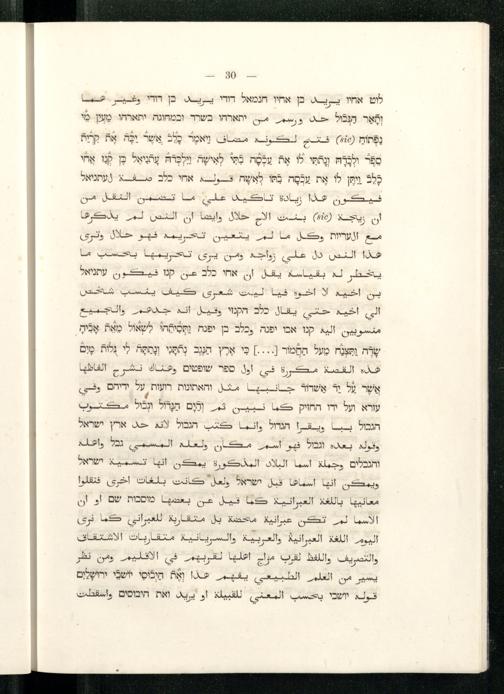 — 30 —
לוט אחיו يريد בן אחיו חנמאל דודי يريد בן דודי وغير هما
וְתָאַר הַגְּבוּל حد ورسم من יתארהו בשרד ובמחוגה יתארהו מַעְיַן מֵי
נֶפְתּוֹחַ (sic) فتح لكونه مضاف וַיֹּאמֶר כָּלֵב אֲשֶׁר יַכֶּה אֶת קִרְיַת
סֵפֶר וּלְכָדָהּ וְנָתַתִּי לוֹ אֶת עַכְסָה בִתִּי לְאִשָּׁה וַיִּלְכְּדָהּ עָתְנִיאֵל בֶּן קְנַז אֲחִי
כָלֵב וַיִּתֶּן לוֹ אֶת עַכְסָה בִתּוֹ לְאִשָּׁה قوله אחי כלב صفة לעתניאל
فيكون هذا زيادة تاكيد على ما تضمن النقل من
ان زيجة (sic) بنت الاخ حلال وايضا ان النص لم يذكرها
مع العריות وكل ما لم يتعين تحريمه فهو حلال وترى
هذا النص دل على زواجه ومن يرى تحريمها بحسب ما
يخطر له بقياسه يقل ان אחי כלב عن קנז فيكون עתניאל
بن اخيه لا اخوه فيا ليت شعرى كيف ينسب شخص
الى اخيه حتى يقال כלב הקנזי وقيل انه جدهم والجميع
منسوبين اليه קנז אבו יפנה וכלב בן יפנה וַתְּסִיתֵהוּ לִשְׁאוֹל מֵאֵת אָבִיהָ
שָׂדֶה וַתִּצְנַח מֵעַל הַחֲמוֹר [....] כִּי אֶרֶץ הַנֶּגֶב נְתַתָּנִי וְנָתַתָּה לִי גֻּלֹּת מָיִם
هذه القصة مكررة فى اول ספר שופטים وهناك نشرح الفاظها
אֲשֶׁר עַל יַד אַשְׁדּוֹד جانبها مثل והאתונות רועות על ידיהם وفى
עזרא ועל ידו החזיק كما نبين ثم וְהַיָּם הַגָּדוֹל וּגְבוּל مكتوب
הגבול بيا ويقرا הגדול وانما كتب הגבול لانه حد ארץ ישראל
وقوله بعده וגבול فهو اسم مكان ولعله المسمى גבל واهله
והגבלים وجملة اسما البلاد المذكورة يمكن انها تسمية ישראל
ويمكن انها اسماها قبل ישראל ولعل كانت بلغات اخرى فنقلوا
معانيها باللغة العبرانية كما قيل عن بعضها מוסבות שם او ان
الاسما لم تكن عبرانية محضة بل متقاربة للعبرانى كما نرى
اليوم اللغة العبرانية والعربية والسريانية متقاربات الاشتقاق
والتصريف واللفظ لقرب مزاج اهلها لقربهم فى الاقليم ومن نظر
يسير من العلم الطبيعى يفهم هذا וְאֶת הַיְבוּסִי יוֹשְׁבֵי יְרוּשָׁלַיִם
قوله יושבי بحسب المعنى للقبيلة او يريد ואת היבוסים واسقطت